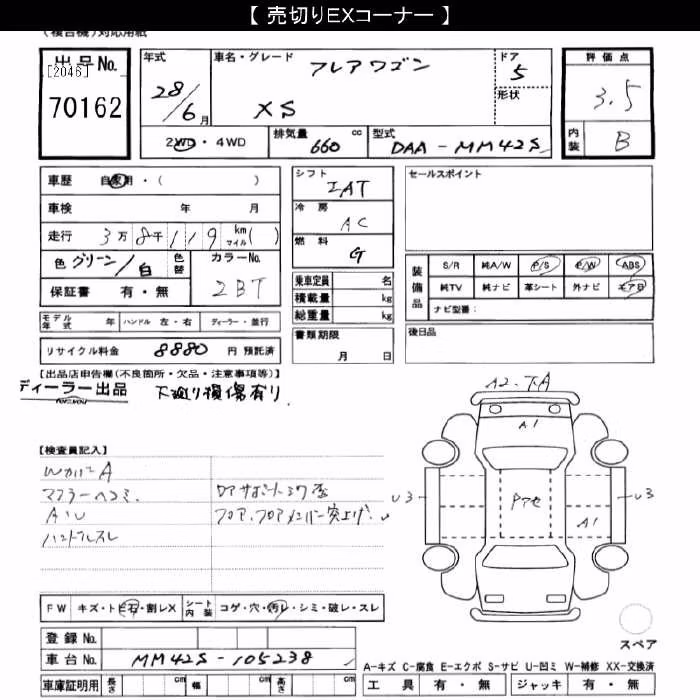 【 売切りEXコーナー 】
(複合機)対応用紙
出品No.
[2046]
70162
年式
28/6月
車名・グレード
フレアワゴン
XS
ドア
5
形状
評価点
3.5
内装
B
2WD・4WD
排気量 660 cc
型式 DAA-MM42S
車歴 自家用・( )
車検 年 月
走行 3万8千119 km マイル( )
色 グリーン/白
色替
カラーNo.
2BT
保証書 有・無
モデル年式 年 ハンドル 左・右 ディーラー・並行
リサイクル料金 8880 円 預託済
シフト
IAT
冷房
AC
燃料
G
乗車定員 名
積載量 kg
総重量 kg
書類期限
月 日
セールスポイント
装備品
S/R 純A/W P/S P/W ABS
純TV 純ナビ 革シート 外ナビ エアB
ナビ型番:
後日品
【出品店申告欄(不良箇所・欠品・注意事項等)】
ディーラー出品 下廻り損傷有り.
【検査員記入】
マフラーヘコミ.
AU
ハンドルスレ
フロア、フロアメンバー突上げ.
A2.下A
A1
U3
Pアセ
U3
A1
FW キズ・トビ石・割レX
シート内装 コゲ・穴・汚レ・シミ・破レ・スレ
登録No.
車台No. MM42S-105238
車庫証明用 長さ cm 幅 cm 高さ cm
スペア
A-キズ C-腐食 E-エクボ S-サビ U-凹ミ W-補修 XX-交換済
工具 有・無 ジャッキ 有・無